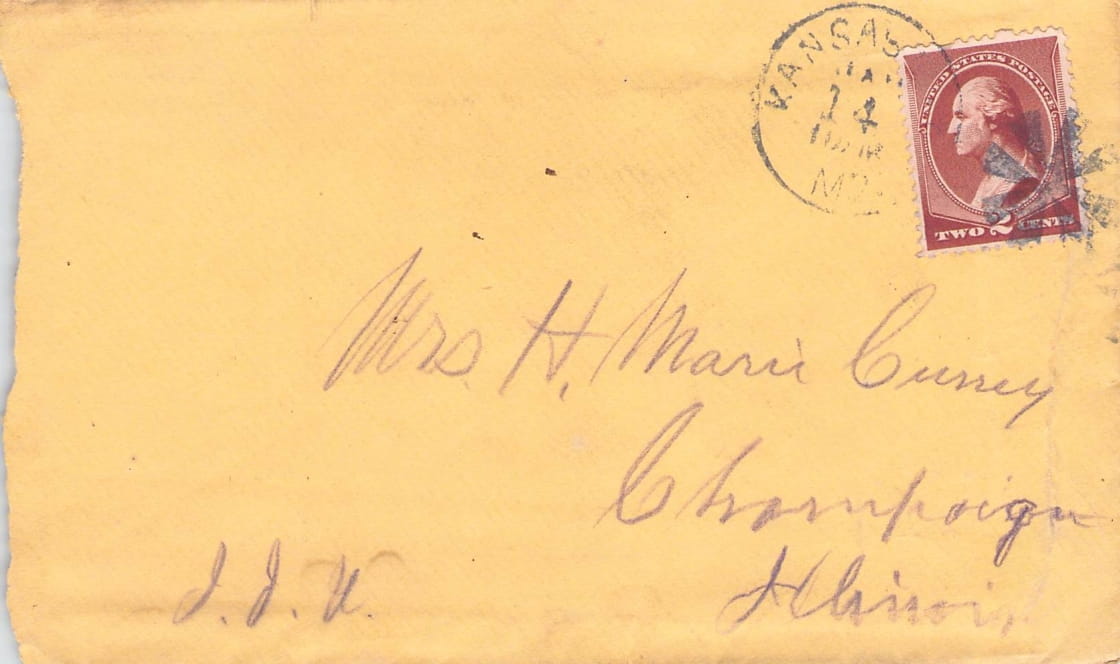 KANSAS
MAR
14
MO.
UNITED STATES POSTAGE
TWO 2 CENTS
Mrs. H. Marie Currey
Champaign
Illinois.
I. I. U.